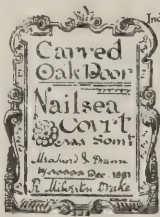 Carved
Oak Door
Nailsea
Court
Somt
Measured & Drawn
by Dec. 1891
Drake